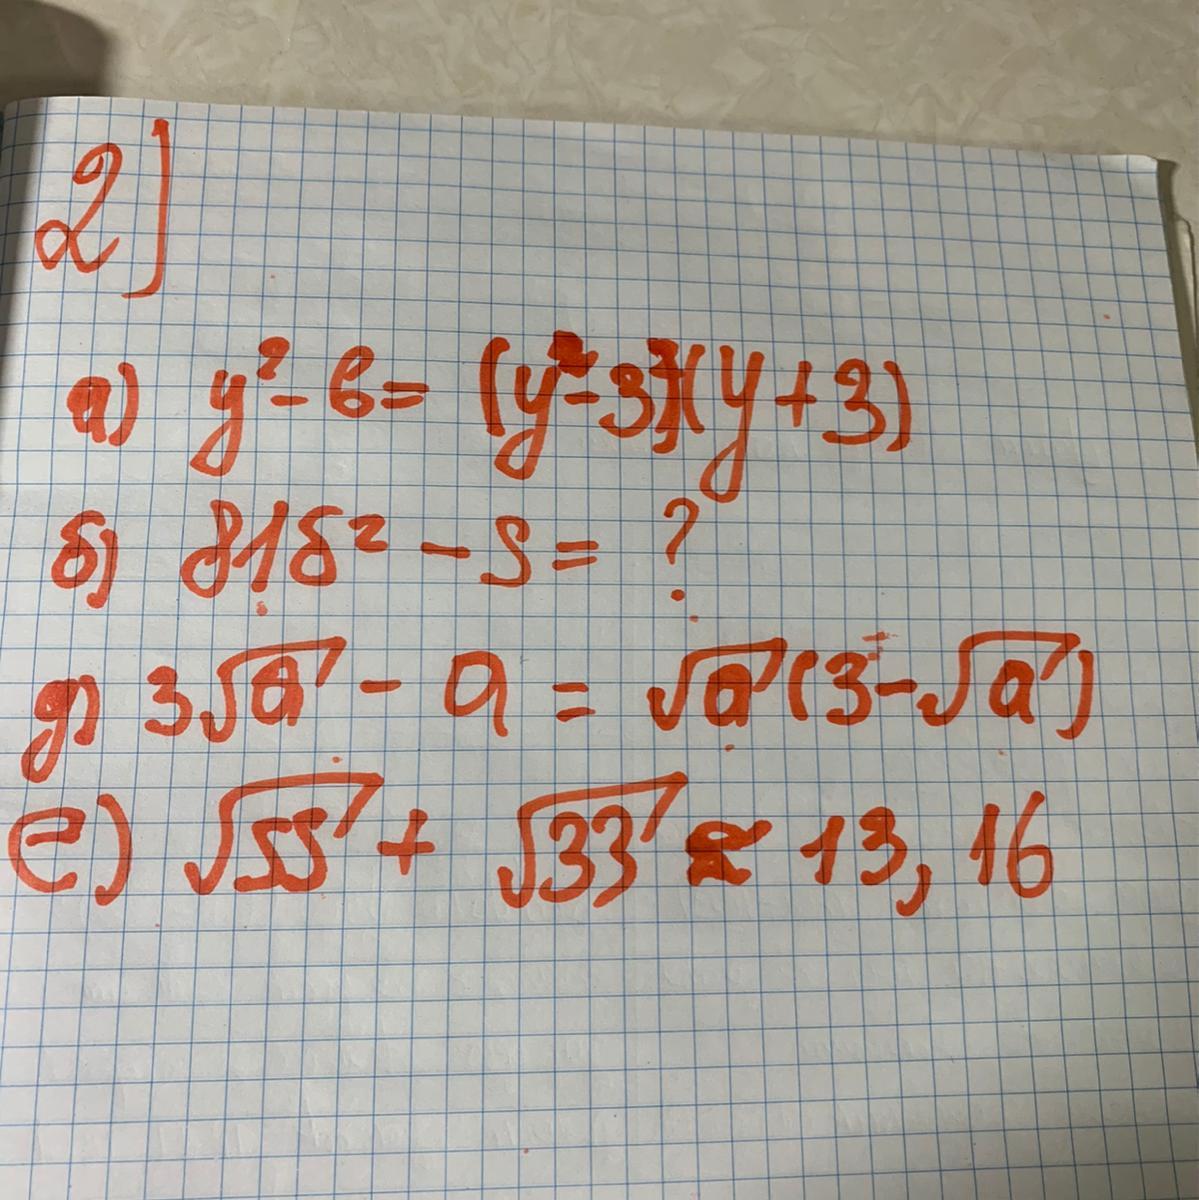 2)
а) y² - 6 = (y - 3)(y + 3)
б) 81б² - 5 = ?
д) 3√a - a = √a (3 - √a)
е) √55 + √33 ≈ 13,16